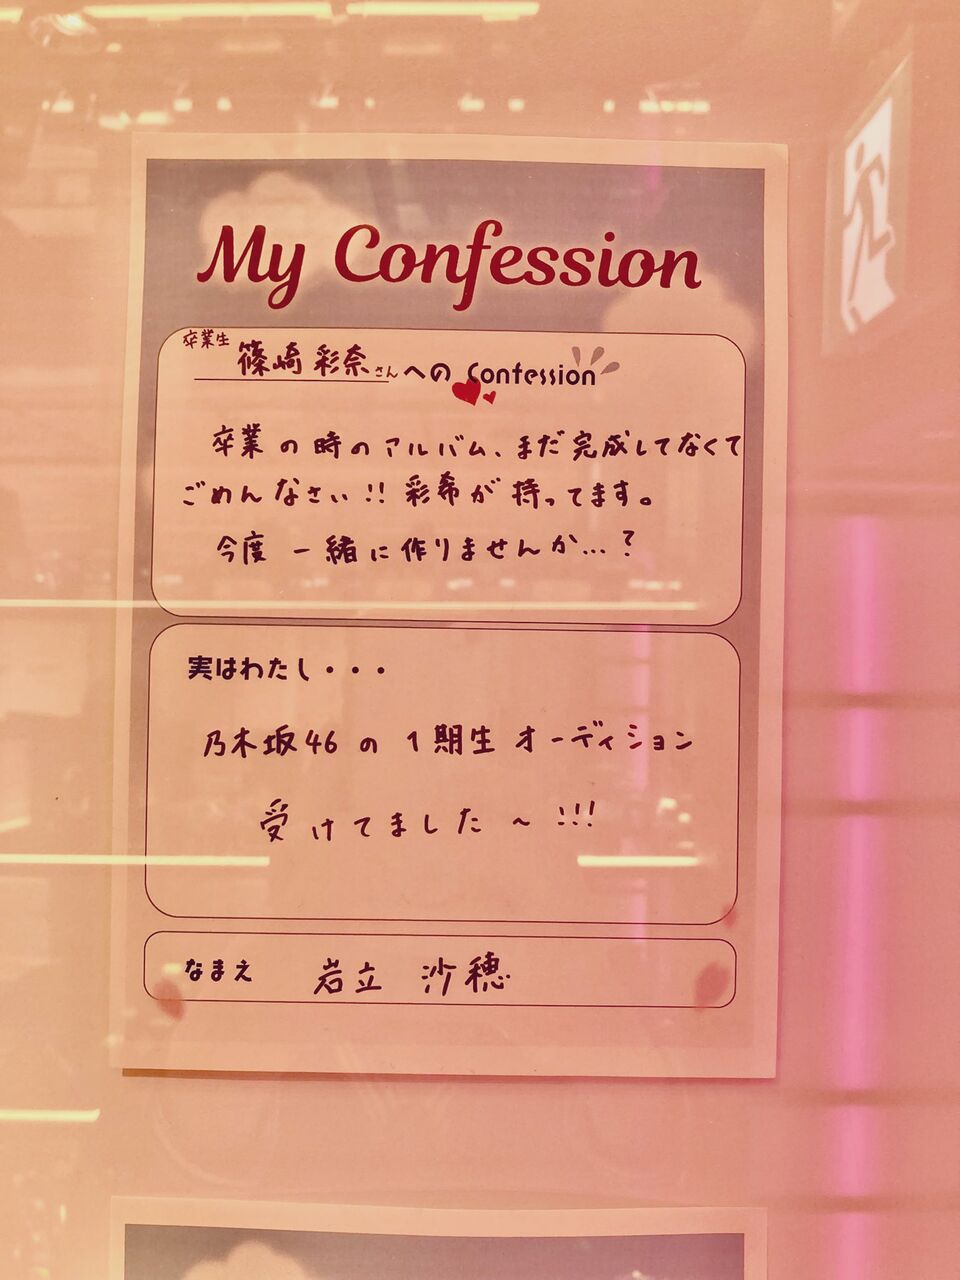 My Confession
卒業生 篠崎 彩奈さんへの Confession
卒業の時のアルバム、まだ完成してなくて
ごめんなさい!! 彩希が持ってます。
今度 一緒に作りませんか…?
実はわたし・・・
乃木坂46の1期生オーディション
受けてました〜!!!
なまえ 岩立 沙穂